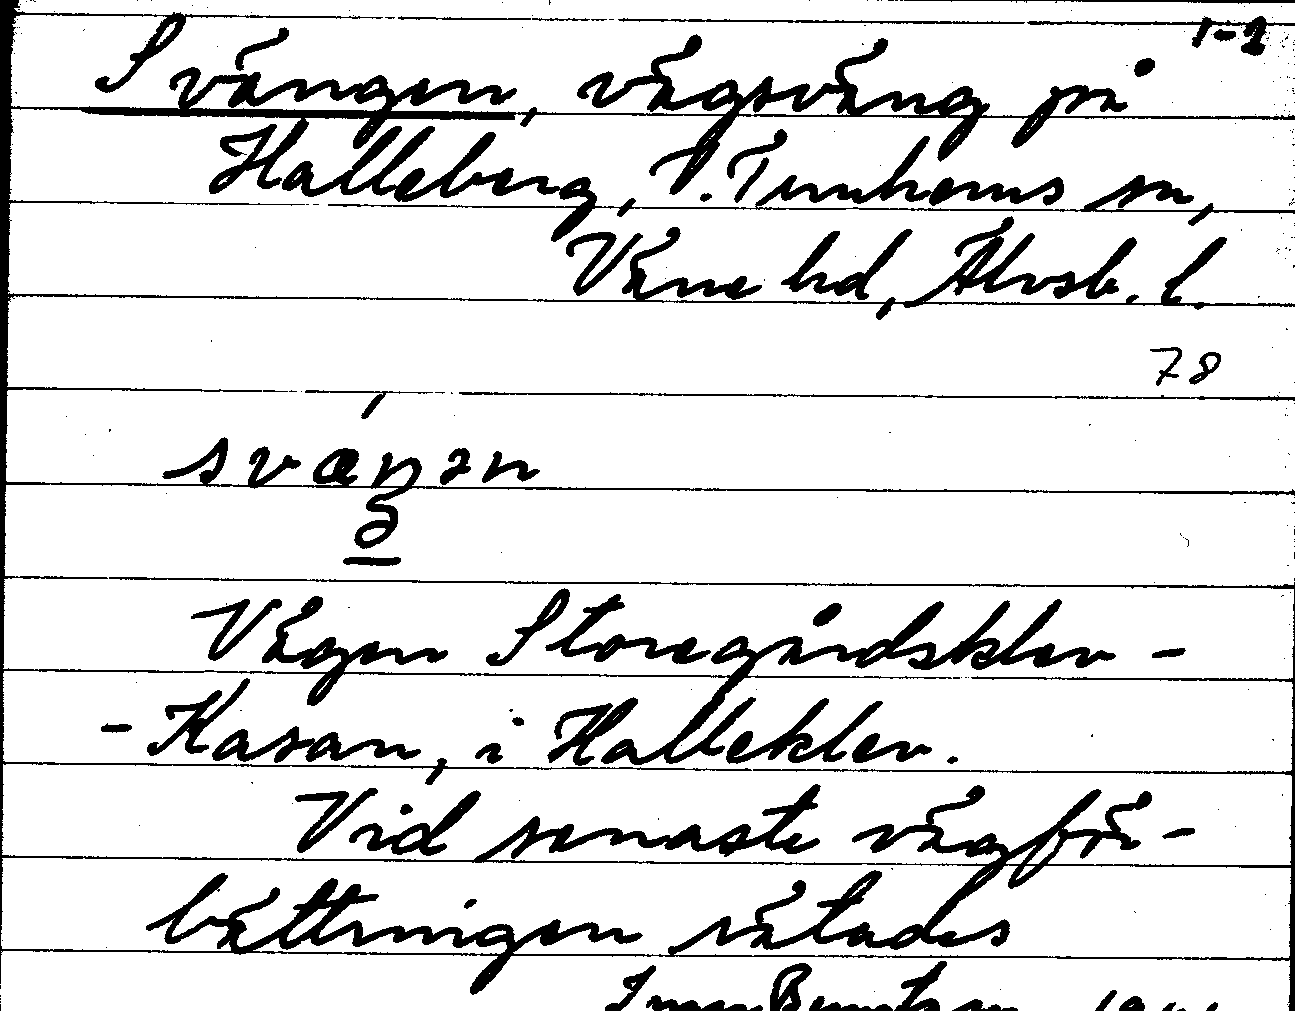 1-2
Svängen, vägsväng på
Halleberg, V. Tunhems sn,
Väne hd, Älvsb. l.
78
svæŋən
Vägen Storegårdsklev -
- Kasan, i Halleklev.
Vid senaste vägför-
bättringen rätades